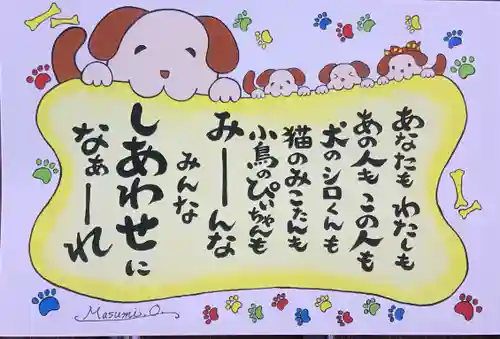 あなたも わたしも
あの人も この人も
犬のシロくんも
猫のみこたんも
小鳥のぴぃちゃんも
みーんな
みんな
しあわせに
なぁーれ
Masumi.O.